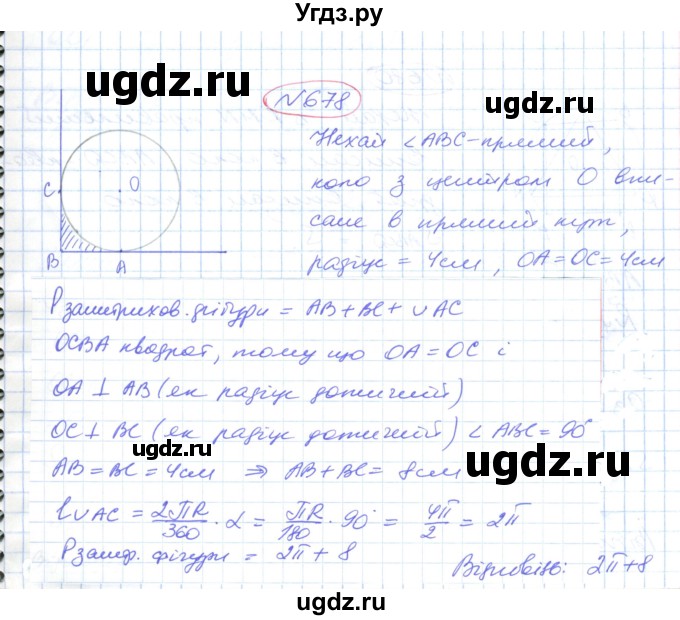 Угдз.ру
ugdz.ru
№678
Нехай ∠ABC-прямий,
коло з центром O впи-
сане в прямий кут,
радіус = 4см, OA=OC=4см
C
O
B
A
ugdz.ru
P заштрихов. фігури = AB+BC+∪AC
OCBA квадрат, тому що OA=OC і
OA⊥AB (як радіус дотичній)
OC⊥BC (як радіус дотичній) ∠ABC=90°
ugdz.ru
AB=BC=4см ⇒ AB+BC=8см
ugdz.ru
l∪AC = 2πR/360 · α = πR/180 · 90° = 4π/2 = 2π
ugdz.ru
P заштр. фігури = 2π+8
Відповідь: 2π+8
ugdz.ru